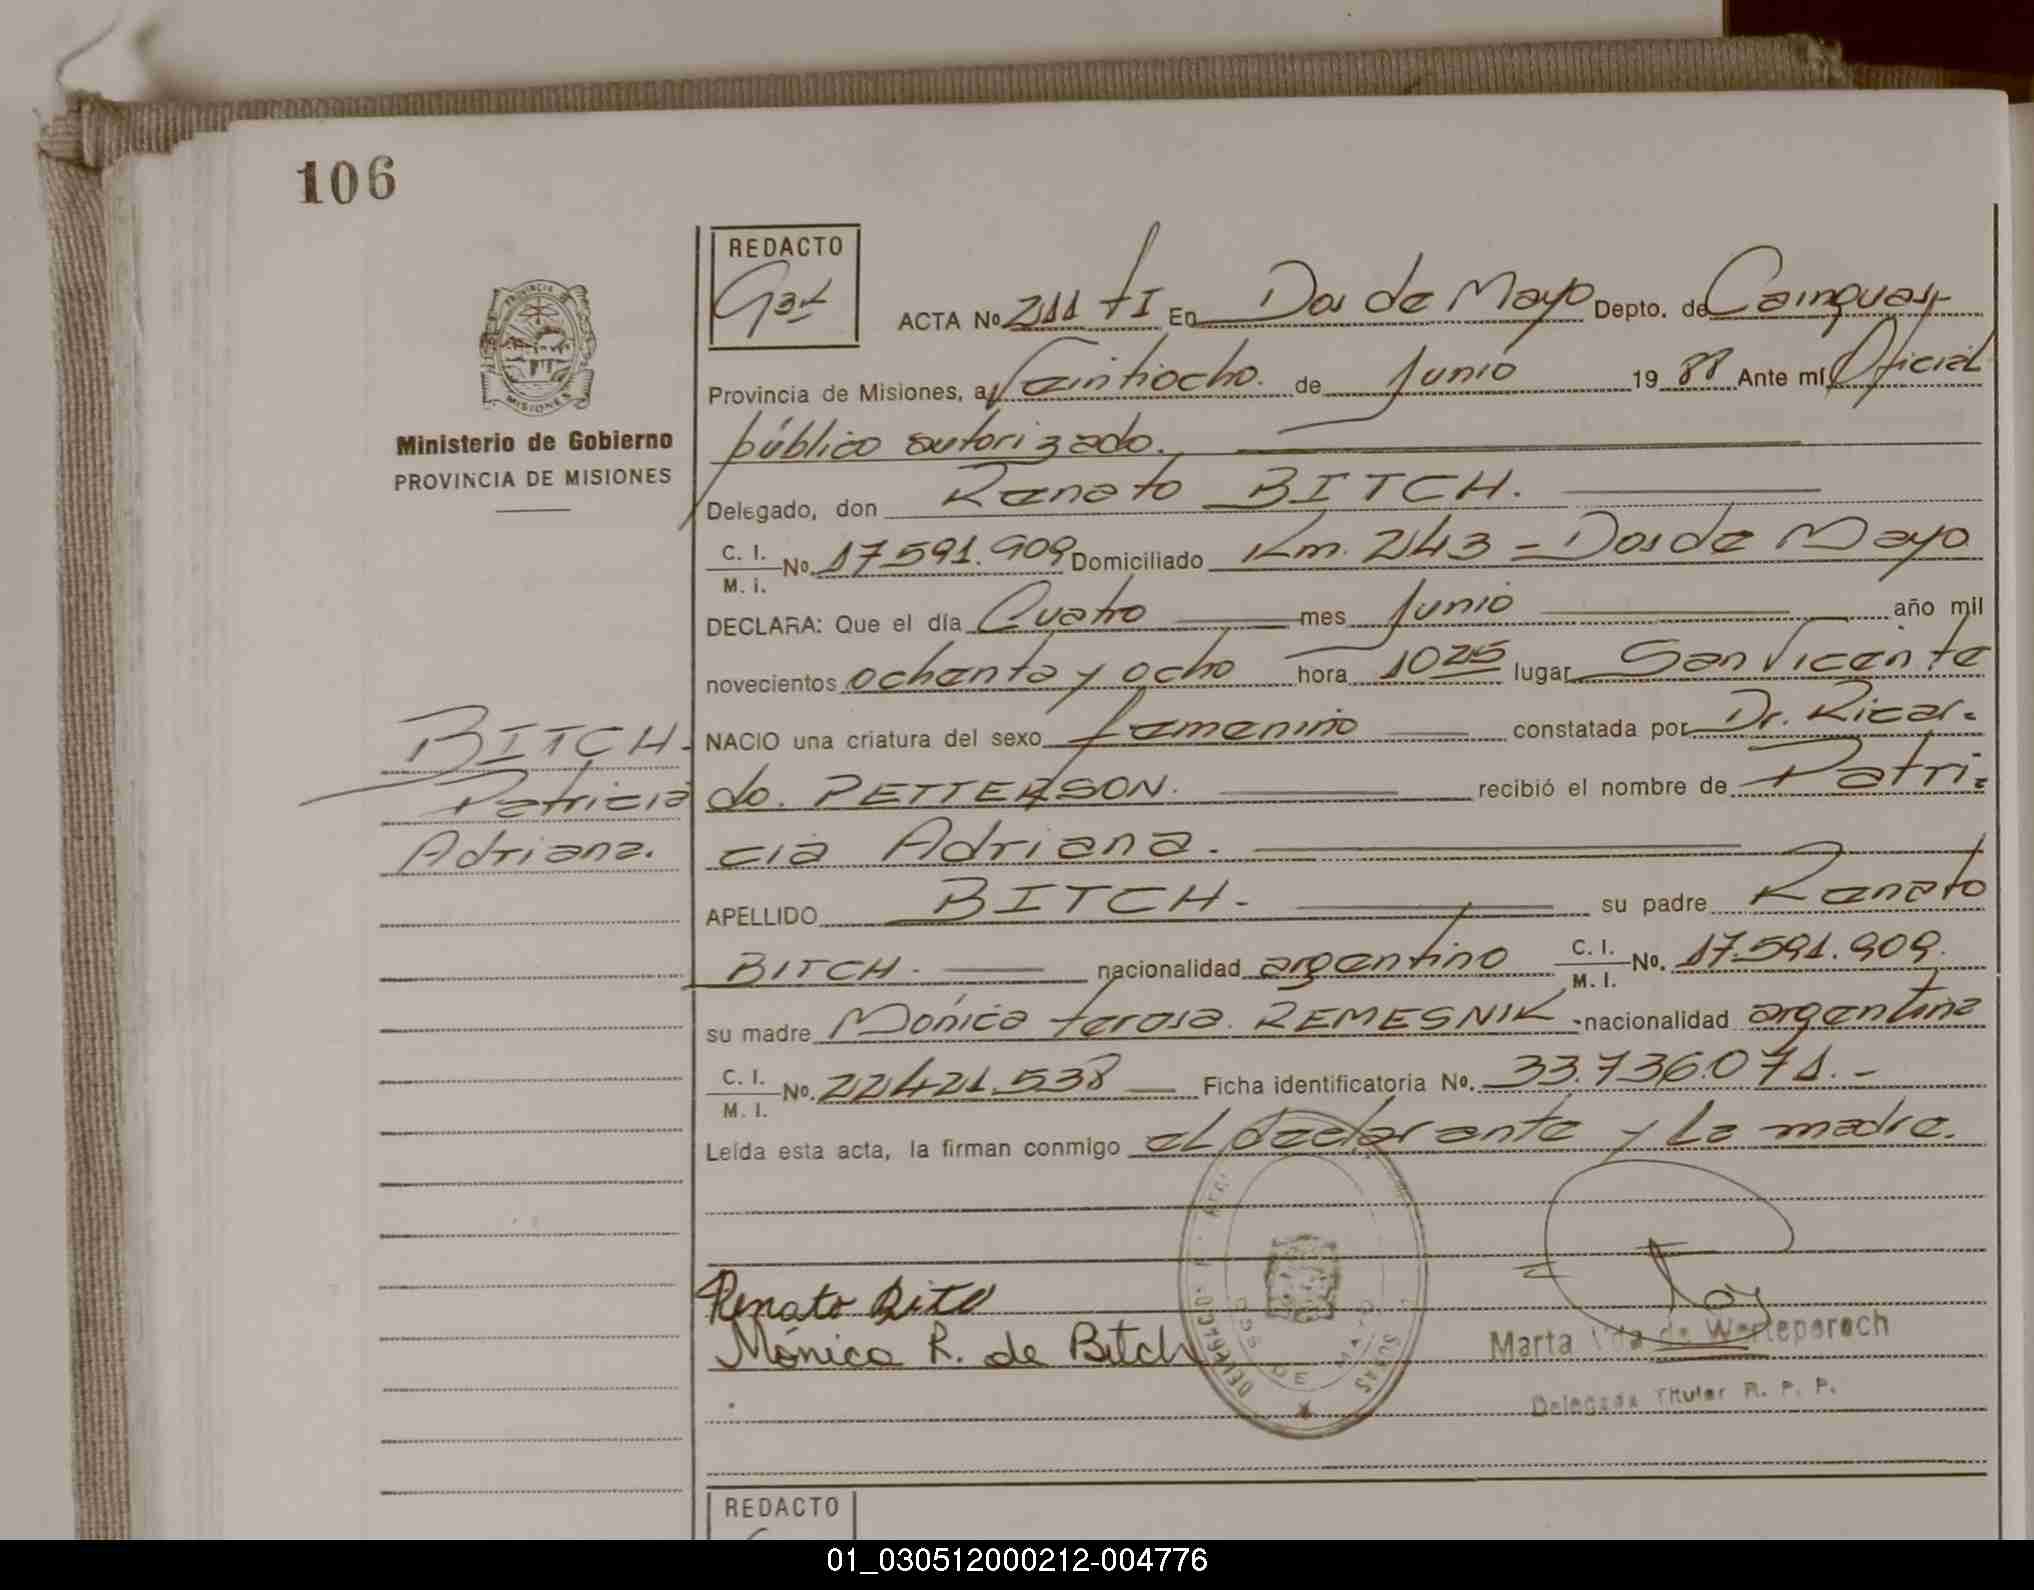 106
REDACTO
PROVINCIA DE
MISIONES
Ministerio de Gobierno
PROVINCIA DE MISIONES
ACTA No 211 tI En Dos de Mayo Depto. de Cainguas
Provincia de Misiones, a Veintiocho. de Junio 19 88 Ante mí Oficial
público autorizado.
Delegado, don Renato BITCH.
C. I.
M. I. No. 17591.909 Domiciliado Km. 243 = Dos de Mayo
DECLARA: Que el día Cuatro mes Junio año mil
novecientos ochenta y ocho hora 1025 lugar San Vicente
NACIO una criatura del sexo femenino constatada por Dr. Ricar-
do. PETTERSON. recibió el nombre de Patri-
cia Adriana.
BITCH.
Patricia
Adriana.
APELLIDO BITCH. su padre Renato
BITCH. nacionalidad argentino C. I.
M. I. No. 17.591.909.
su madre Mónica teresa. REMESNIK - nacionalidad argentina
C. I.
M. I. No. 22421.538 Ficha identificatoria No. 33.736.071.-
Leída esta acta, la firman conmigo el declarante y La madre.
Renato Bitch
Mónica R. de Bitch
DOS DE MAYO
Marta Vda de Werteperoch
Delegada Titular R. P. P.
REDACTO
01_030512000212-004776